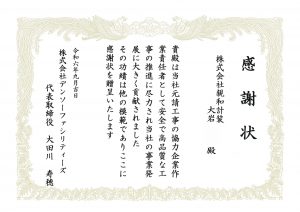 感謝状
株式会社親和計装
大岩　殿
貴殿は当社元請工事の協力企業作
業責任者として安全で高品質な工
事の推進に尽力され当社の事業発
展に大きく貢献されました
その功績は他の模範でありここに
感謝状を贈呈いたします
令和六年九月吉日
株式会社デンソーファシリティーズ
代表取締役　大田川　寿穂